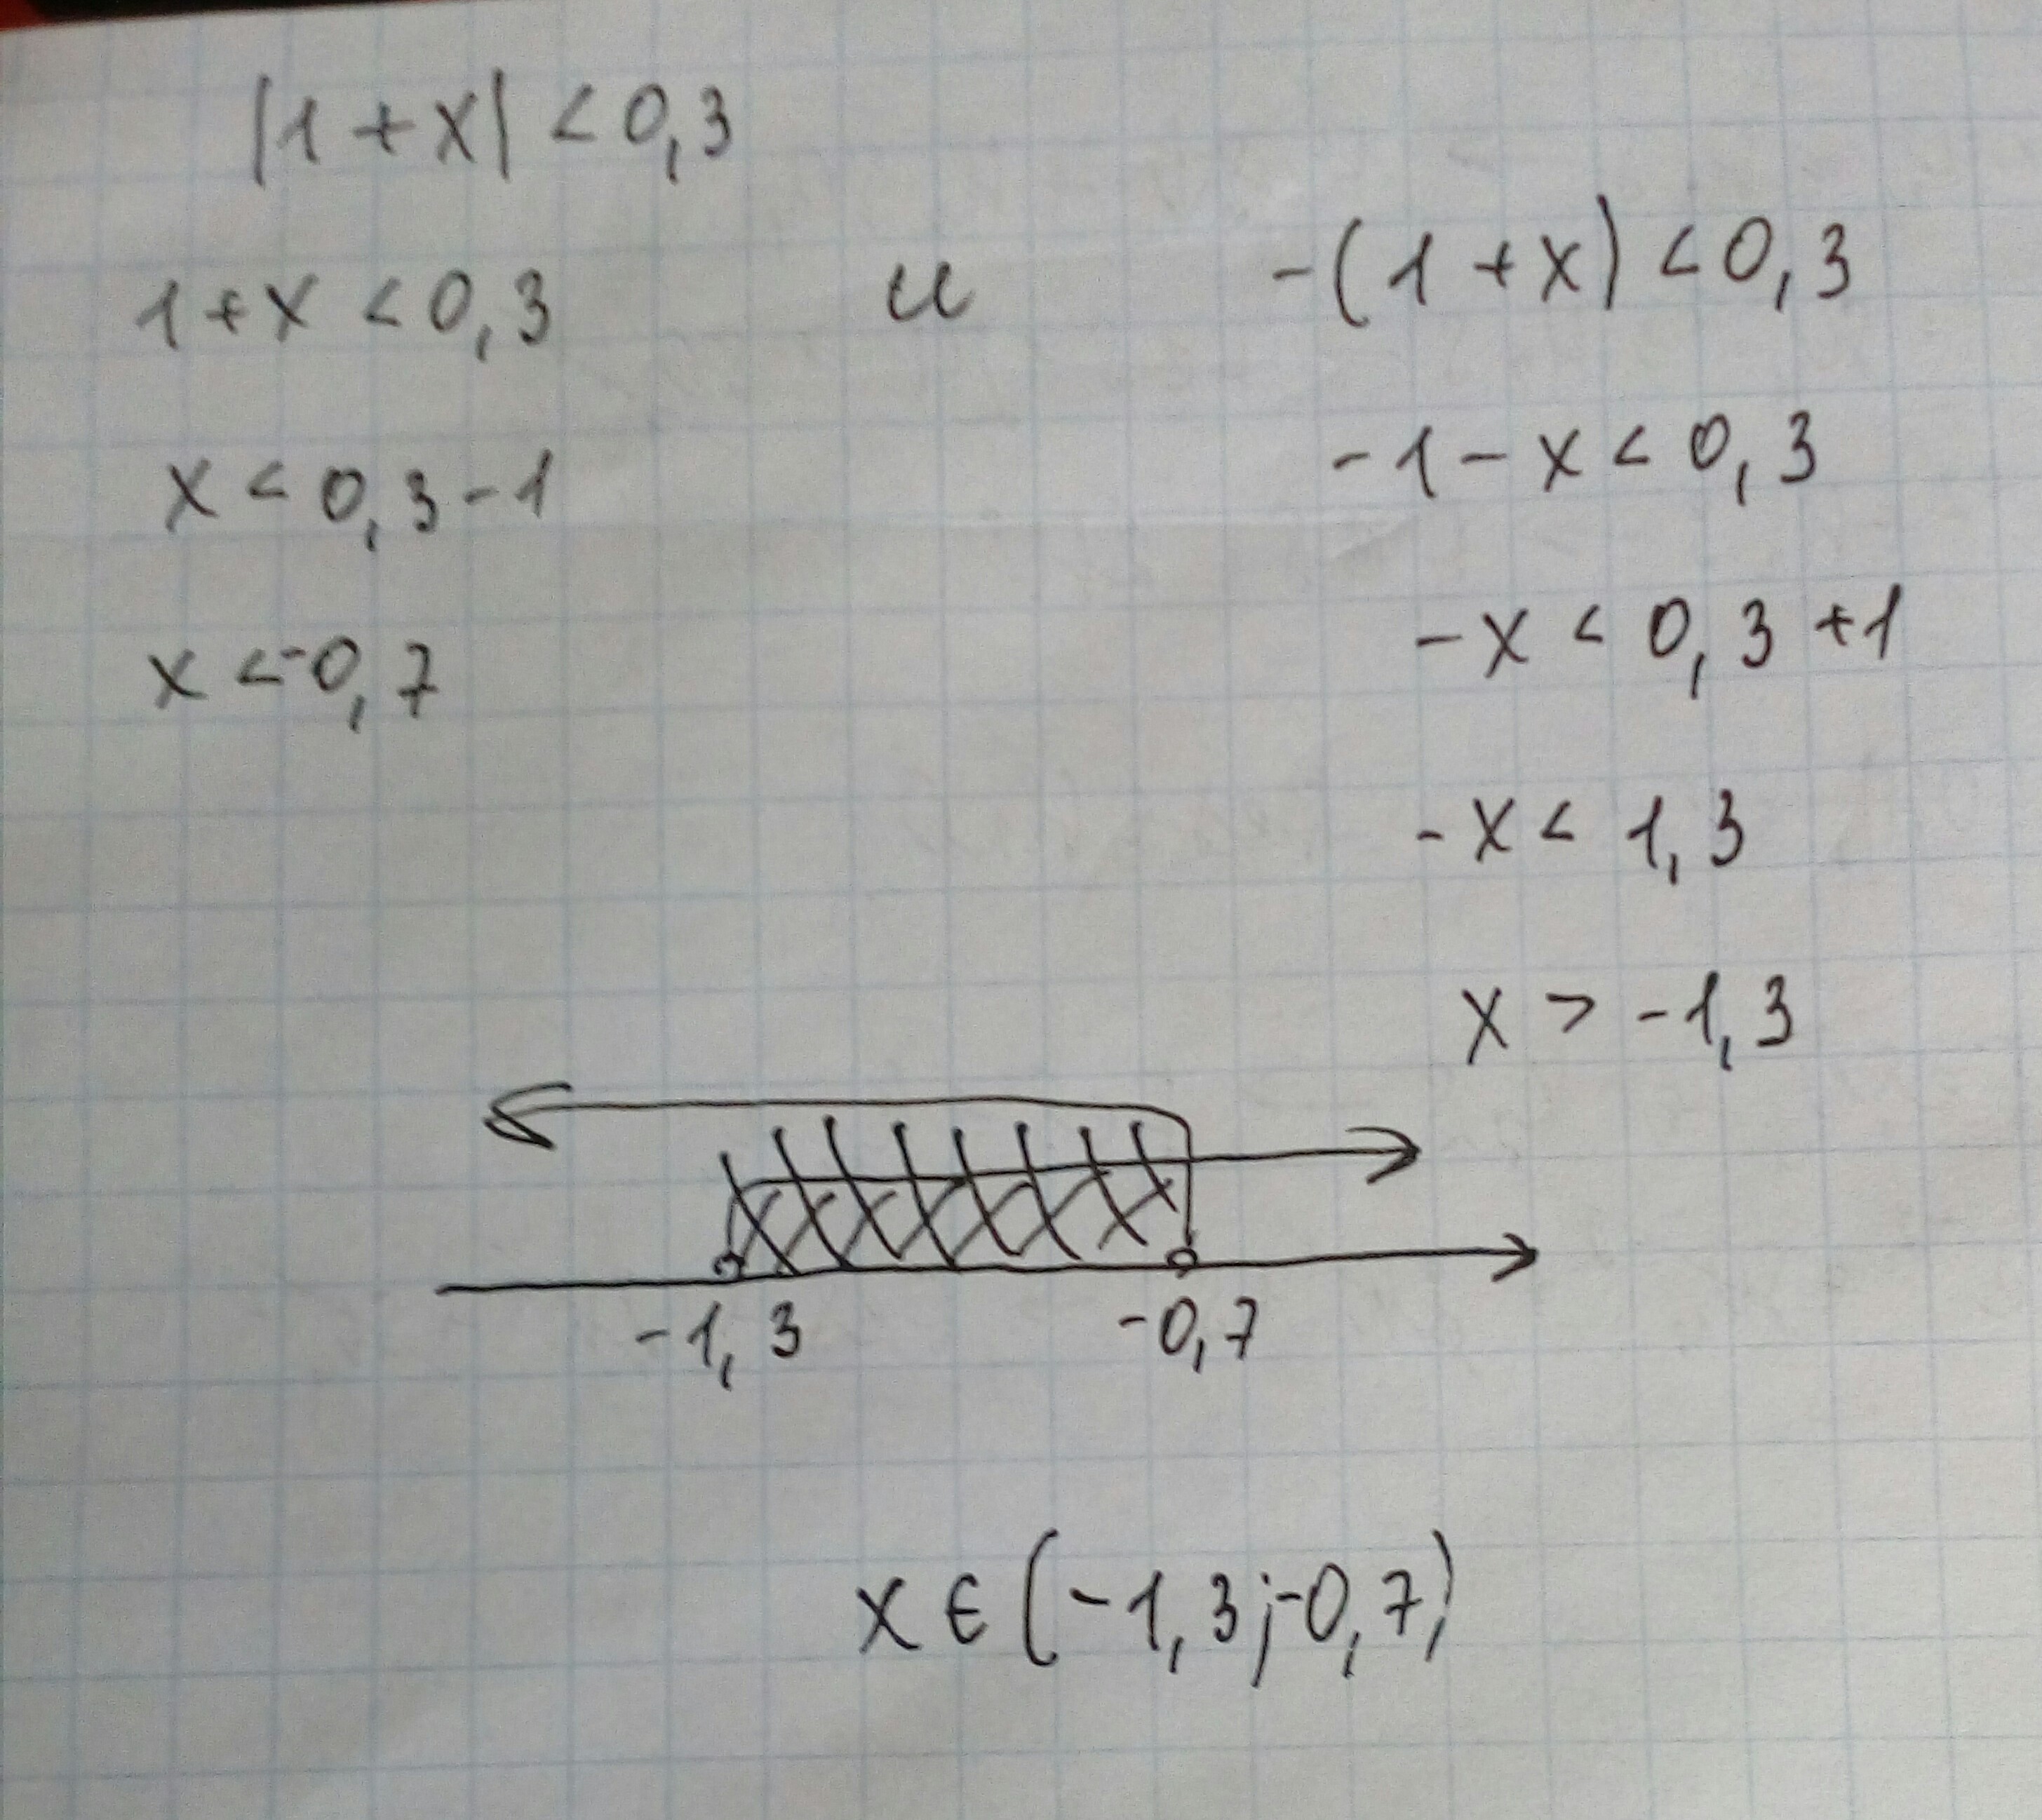 |1+x|<0,3
1+x<0,3 и -(1+x)<0,3
x<0,3-1 -1-x<0,3
x<-0,7 -x<0,3+1
-x<1,3
x>-1,3
-1,3 -0,7
x∈(-1,3;-0,7)